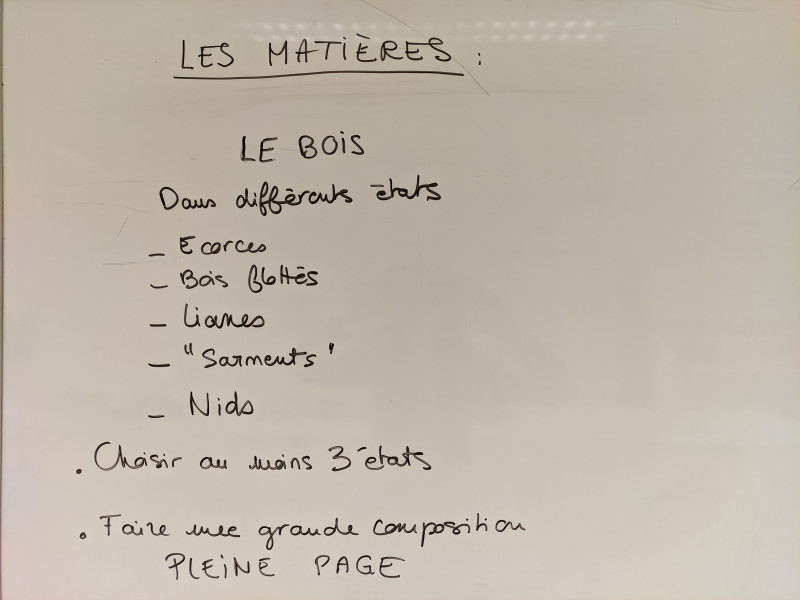 LES MATIÈRES :
LE BOIS
Dans différents états
- Ecorces
- Bois flottés
- Lianes
- "Sarments"
- Nids
. Choisir au moins 3 états
. Faire une grande composition
PLEINE PAGE